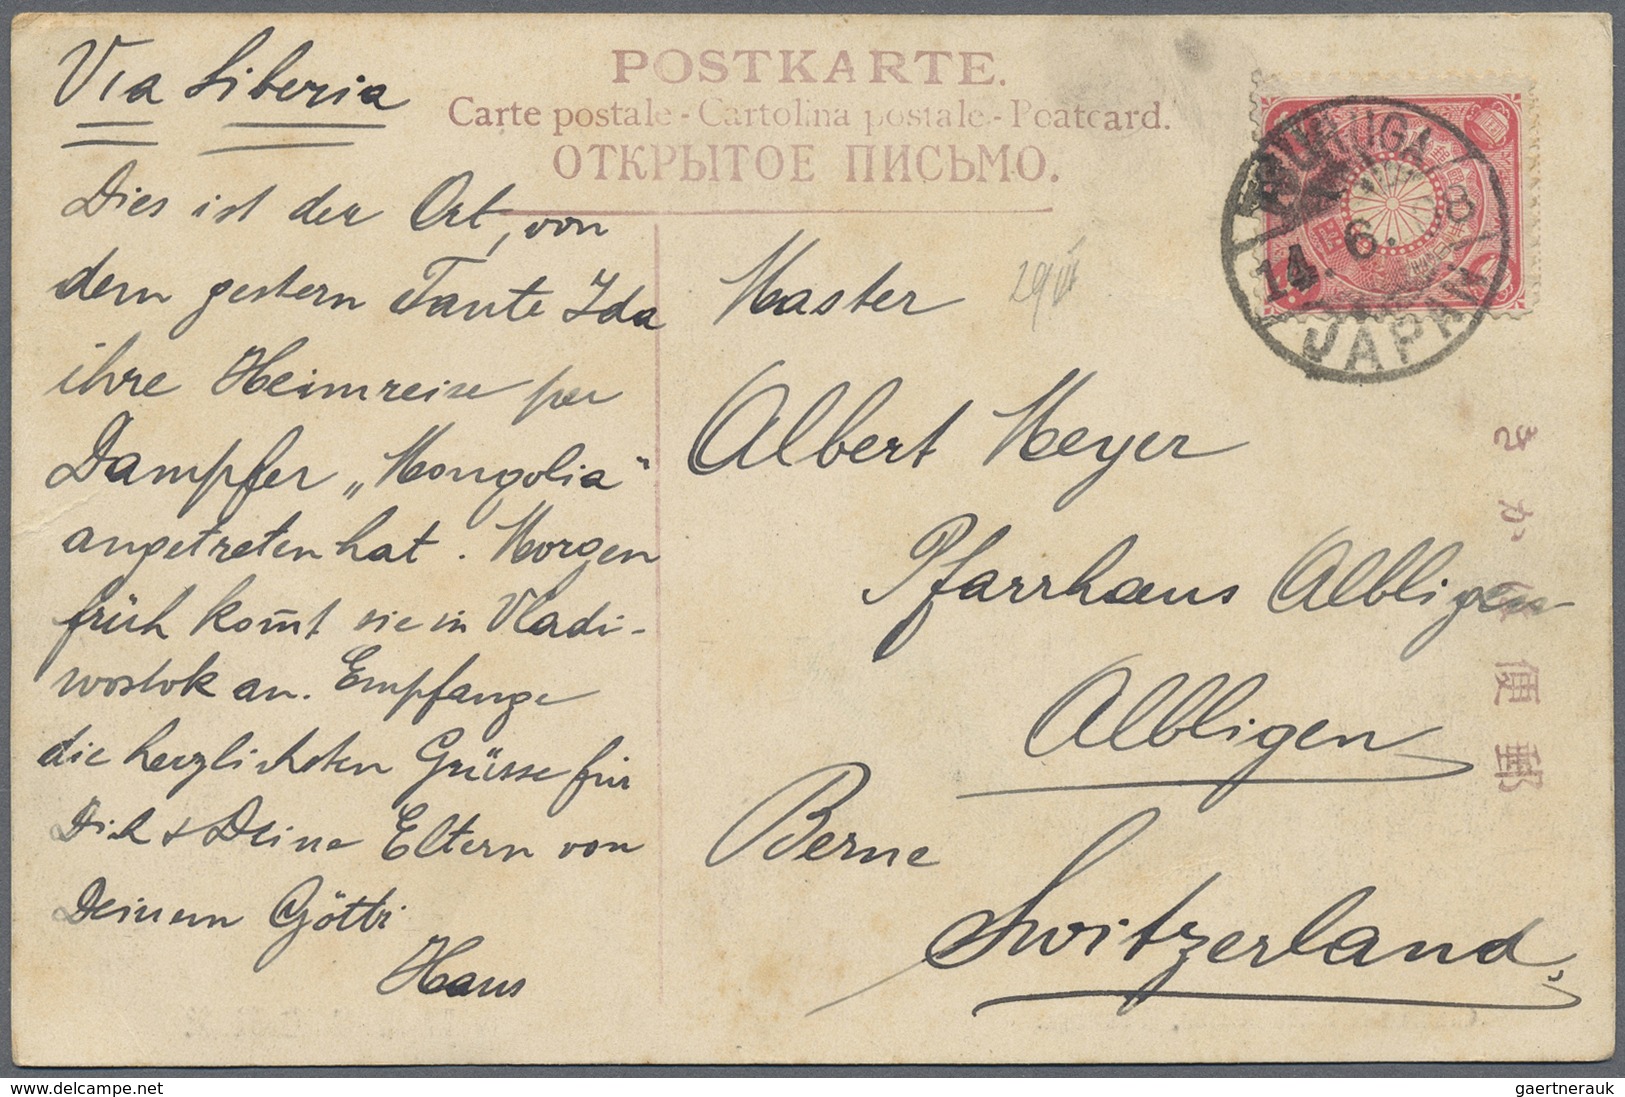 POSTKARTE.
Carte postale - Cartolina postale - Postcard.
ОТКРЫТОЕ ПИСЬМО.
Via Siberia
Dies ist der Ort, von
dem gestern Tante Ida
ihre Heimreise per
Dampfer „Mongolia"
angetreten hat. Morgen
früh kom̄t sie in Vladi-
wostok an. Empfange
die herzlichsten Grüsse für
Dich & Deine Eltern von
Deinem Götti
Hans
Master
29 VI
Albert Meyer
Pfarrhaus Albligen
Albligen
Berne
Switzerland.
TSURUGA
14. 6. 8
JAPAN
郵便はかき
delcampe.net
gaertnerauk